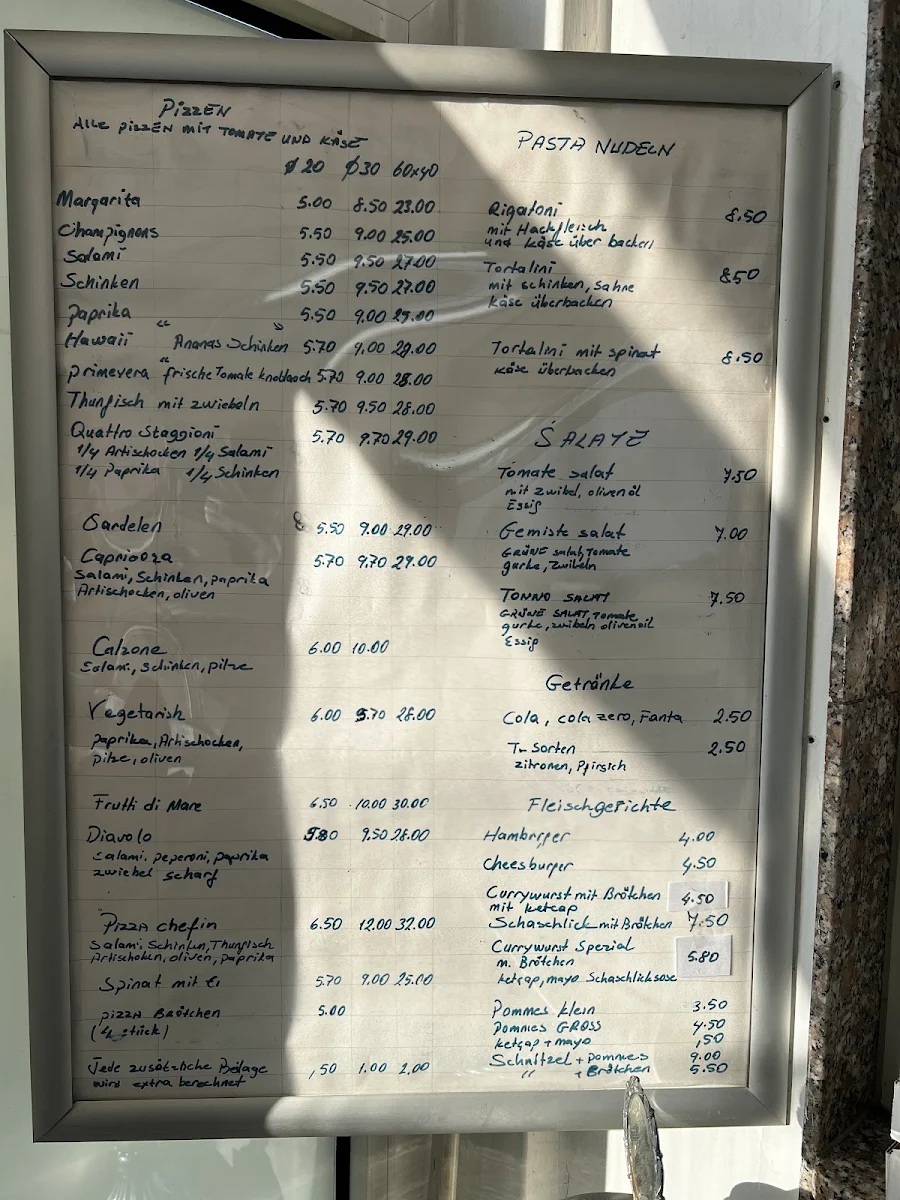 Pizzen
Alle Pizzen mit Tomate und Käse
ø20 ø30 60x40
Margarita 5.00 8.50 23.00
Champignons 5.50 9.00 25.00
Salami 5.50 9.50 27.00
Schinken 5.50 9.50 27.00
Paprika 5.50 9.00 25.00
Hawaii " Ananas Schinken " 5.70 9.00 29.00
primevera " frische Tomate knoblaoch 5.70 9.00 28.00
Thunfisch mit zwiebeln 5.70 9.50 28.00
Quattro Staggioni 5.70 9.70 29.00
1/4 Artischocken 1/4 Salami
1/4 Paprika 1/4 Schinken
Sardelen 5.50 9.00 29.00
Capriooza 5.70 9.70 29.00
Salami, Schinken, paprika
Artischocken, oliven
Calzone 6.00 10.00
Salami, Schinken, pilze
Vegetarish 6.00 9.70 28.00
paprika, Artischocken,
pilze, oliven
Frutti di Mare 6.50 10.00 30.00
Diavolo 5.80 9.50 28.00
Salami, peperoni, paprika
zwiebel scharf
Pizza chefin 6.50 12.00 32.00
Salami, Schinken, Thunfisch
Artischoken, oliven, paprika
Spinat mit Ei 5.70 9.00 25.00
pizza Brötchen 5.00
(4 stück)
Jede zusätzliche Belage ,50 1.00 2.00
wird extra berechnet
Pasta Nudeln
Rigatoni 8.50
mit Hackfleisch
und Käse über backen
Tortalini 850
mit schinken, Sahne
käse überbacken
Tortalini mit spinat 8.50
käse überbacken
Salate
Tomate salat 7.50
mit zwibel, olivenöl
Essig
Gemiste salat 7.00
Grüne salat, Tomate
gurke, zwibeln
Tonno Salat 7.50
Grüne Salat, Tomate
gurke, zwibeln olivenöil
Essig
Getränke
Cola, cola zero, Fanta 2.50
T- Sorten 2.50
zitronen, Pfirsich
Fleischgerichte
Hamburger 4.00
Cheesburger 4.50
Currywurst mit Brötchen 4.50
mit ketcap
Schaschlick mit Brötchen 7.50
Currywurst Spezial 5.80
m. Brötchen
ketçap, mayo Schaschliksose
Pommes klein 3.50
Pommes GROSS 4.50
ketçap + mayo ,50
Schnitzel + pommes 9.00
" + Brötchen 5.50